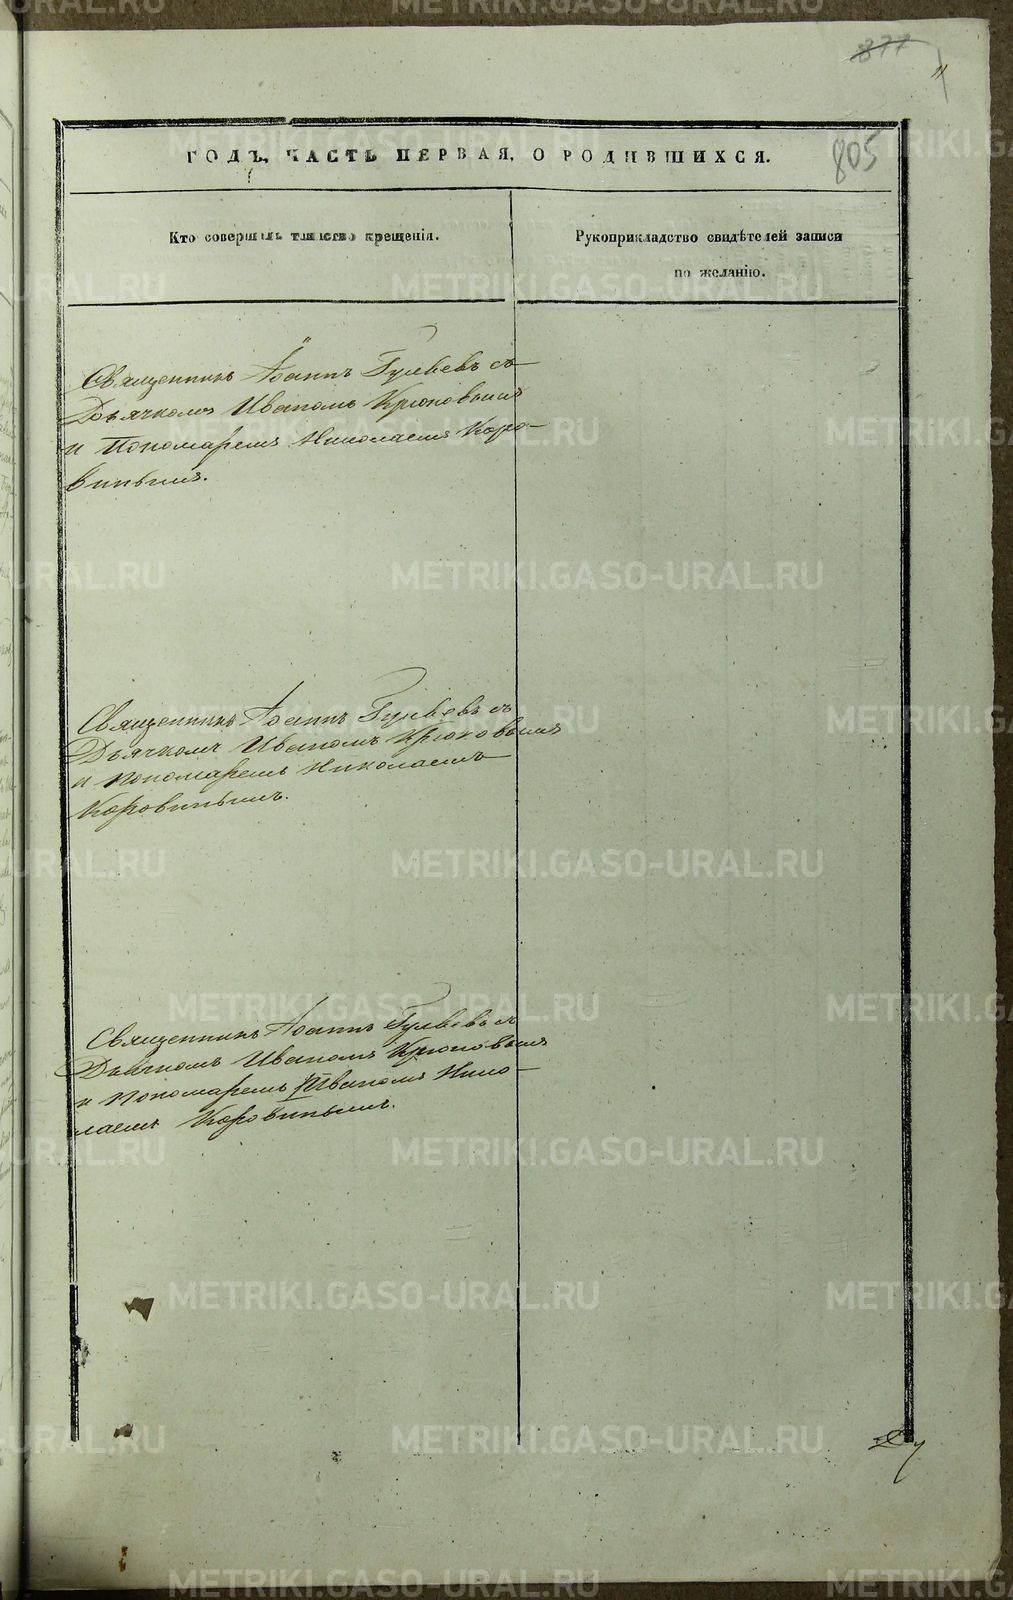 877
11
805
ГОДЪ, ЧАСТЬ ПЕРВАЯ, О РОДИВШИХСЯ.
Кто совершалъ таинство крещенія.
Рукоприкладство свидѣтелей записи
по желанію.
Священникъ Іоаннъ Гуляевъ съ
Дьячкомъ Иваномъ Крюковымъ
и Пономаремъ Николаемъ Коро-
винымъ.
Священникъ Іоаннъ Гуляевъ съ
Дьячкомъ Иваномъ Крюковымъ
и Пономаремъ Николаемъ
Коровинымъ.
Священникъ Іоаннъ Гуляевъ съ
Дьячкомъ Иваномъ Крюковымъ
и Пономаремъ Иваномъ Нико-
лаемъ Коровинымъ.
METRIKI.GASO-URAL.RU